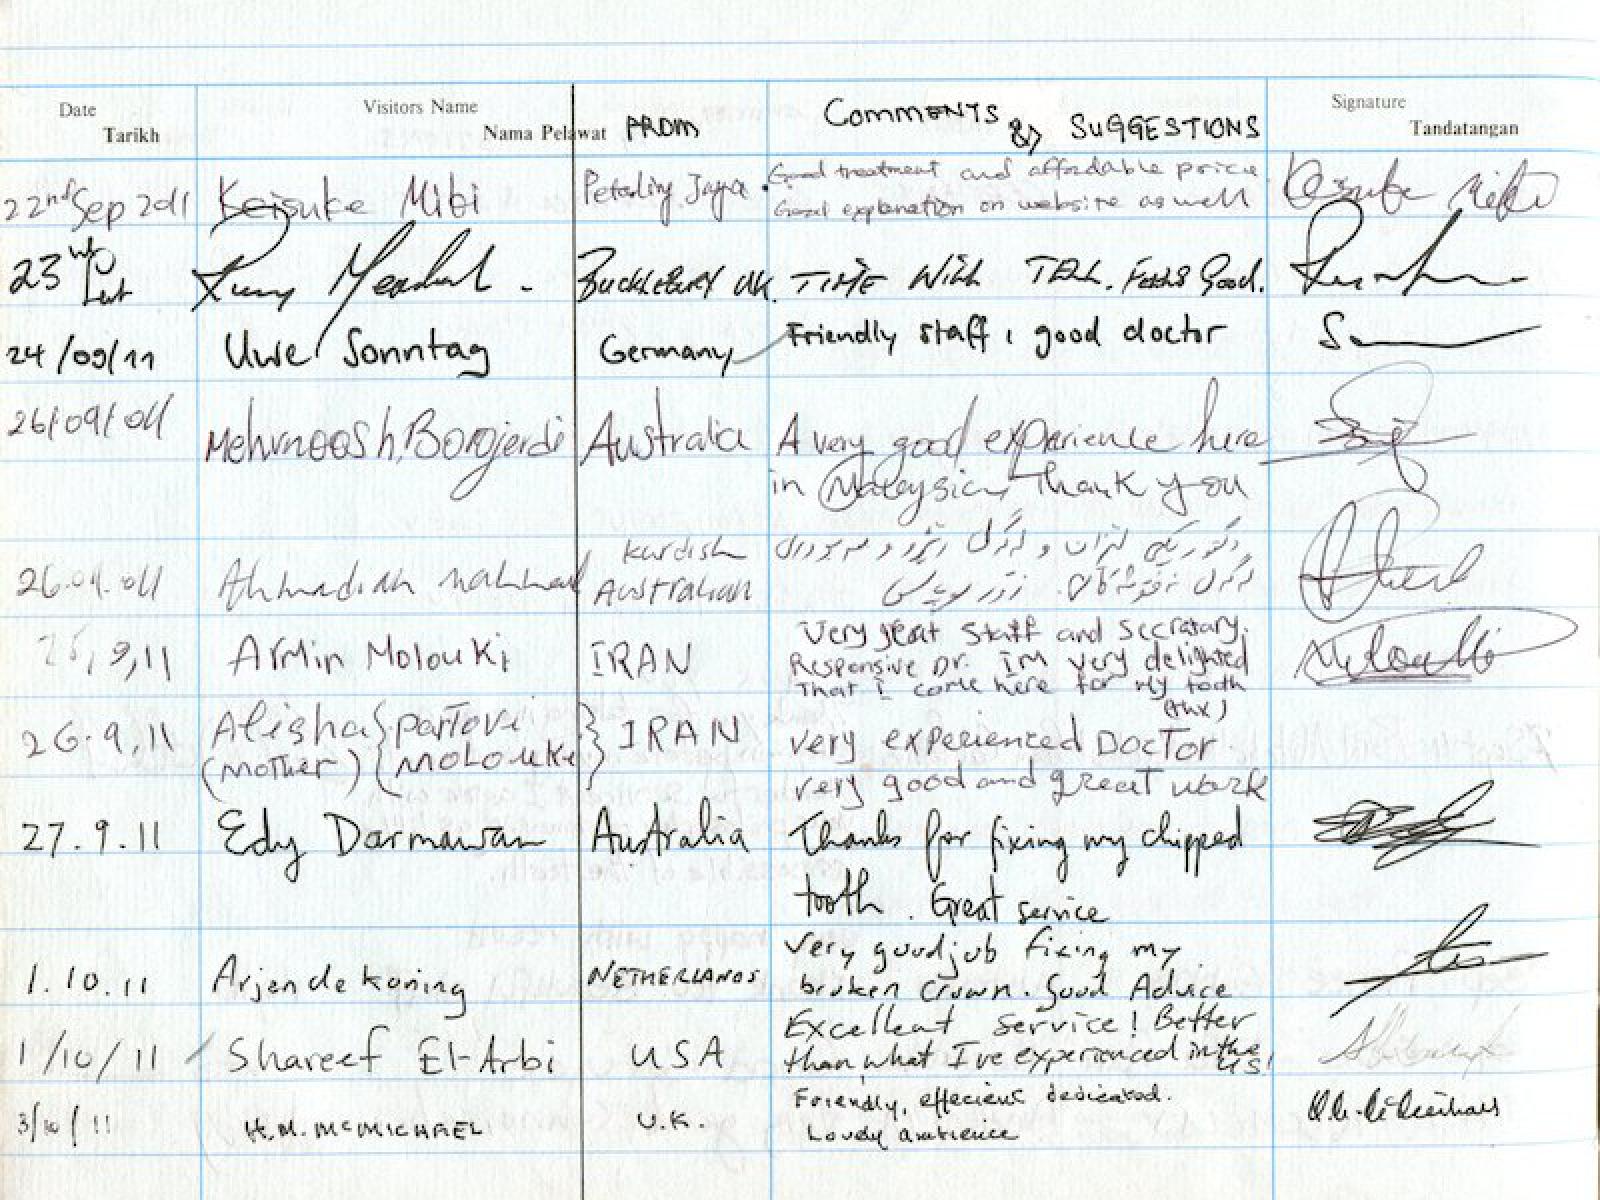 Date Visitors Name Comments & SUGGESTIONS Signature
Tarikh Nama Pelawat FROM Tandatangan
22nd Sep 2011 Keisuke Miki Petaling Jaya Good treatment and affordable price
Good explanation on website as well
23 BUCKLEBURY UK. TIME WILL TELL. FEELS Good.
24/09/11 Uwe Sonntag Germany Friendly staff, good doctor
26/09/011 Mehrnoosh Borojerdi Australia A very good experience here
in Malaysia, Thank you
kurdish
26.09.011 Ahmadian Australian
9,11 Armin Molouki IRAN Very great staff and secratary.
Responsive Dr. I'm very delighted
that I come here for my tooth
(thx)
26.9,11 Alisha { partovi } IRAN very experienced DocTor
(mother) { MOLOUKI very good and great work
27.9.11 Edy Darmawan Australia Thanks for fixing my chipped
tooth. Great service
1.10.11 Arjen de Koning NETHERLANDS Very good job fixing my
broken crown. Good Advice
1/10/11 Shareef El-Arbi USA Excellent service! Better
than what I've experienced in the
US!
3/10/11 H.M. McMICHAEL U.K. Friendly, effecient dedicated.
Lovely ambience